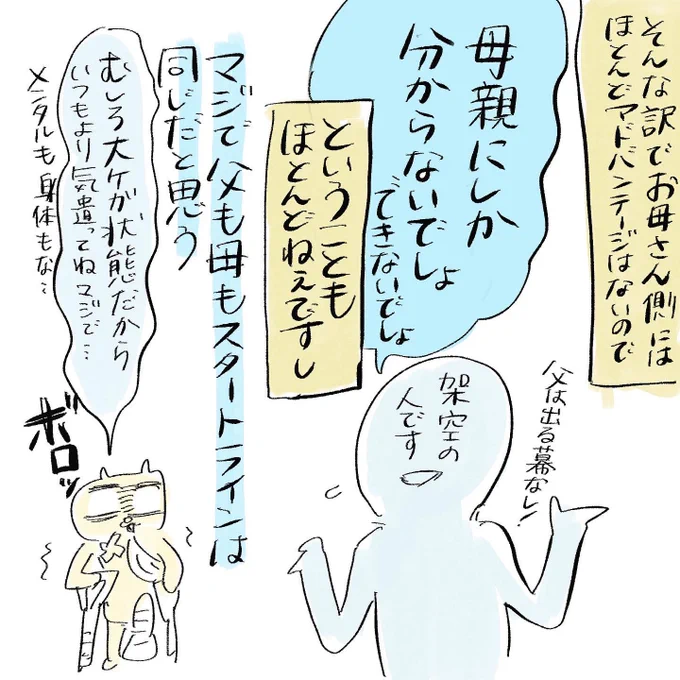 そんな訳でお母さん側には
ほとんどアドバンテージはないので
母親にしか
分からないでしょ
できないでしょ
架空の
人です
父は出る幕なし!
ということも
ほとんどねぇですし
マジで父も母もスタートラインは
同じだと思う
むしろ大ケガ状態だから
いつもより気遣ってねマジで…
メンタルも身体もな…
ボロッ